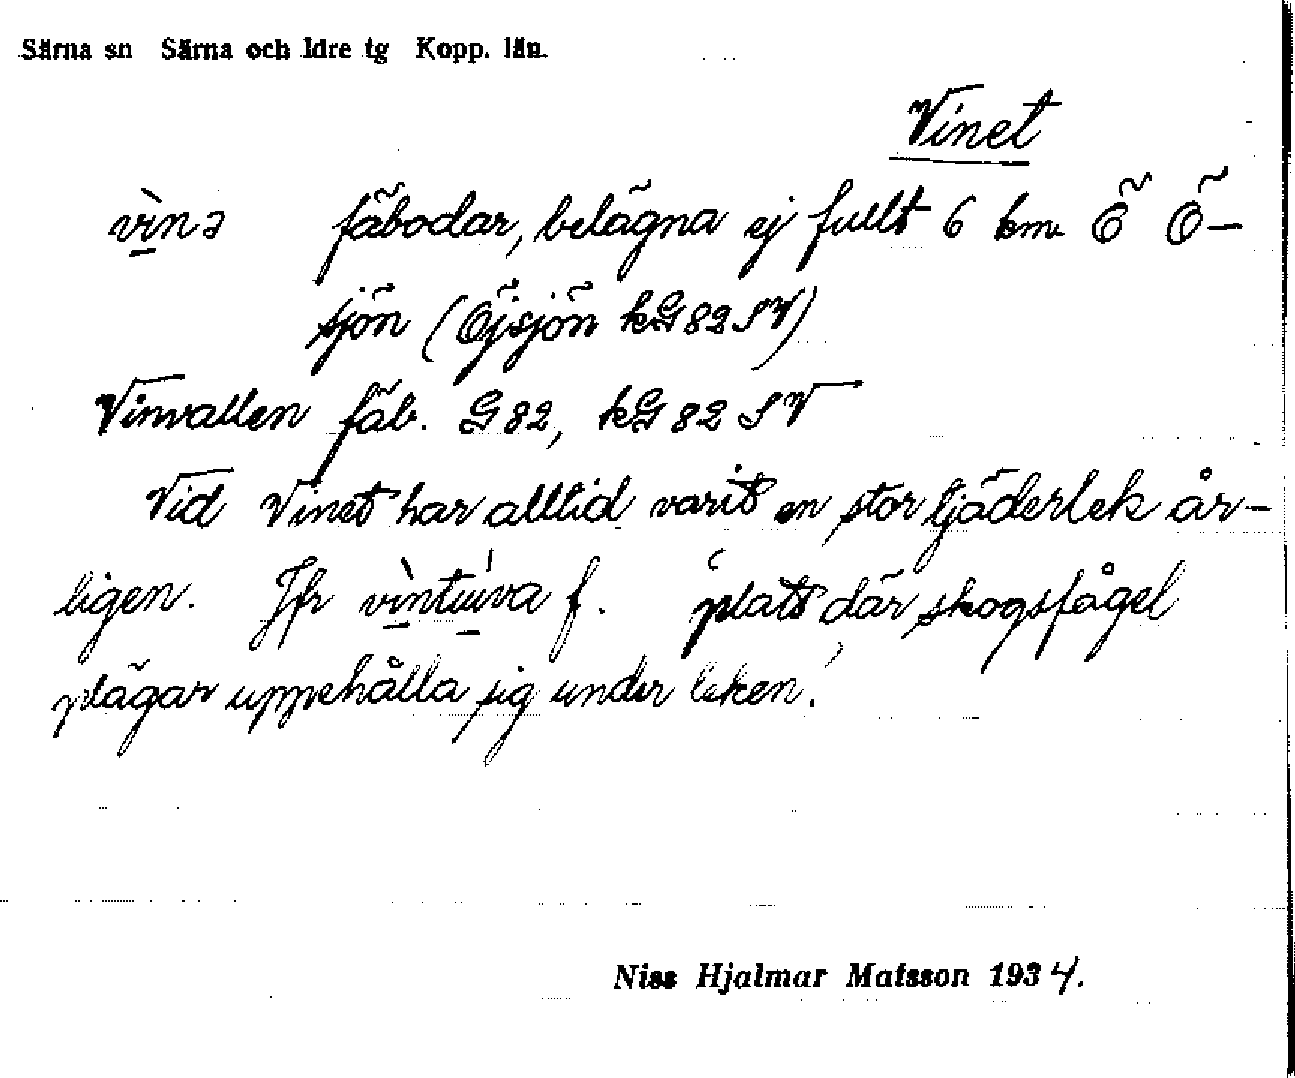 Särna sn Särna och Idre tg Kopp. län.
Vinet
vìnə fäbodar, belägna ej fullt 6 km Ö Ö-
sjön (Öjsjön kG82SV)
Vinvallen fäb. G82, kG82SV
Vid Vinet har alltid varit en stor tjäderlek år-
ligen. Jfr f. ʻplats där skogsfågel
plägar uppehålla sig under leken.ʼ
Niss Hjalmar Matsson 1934.